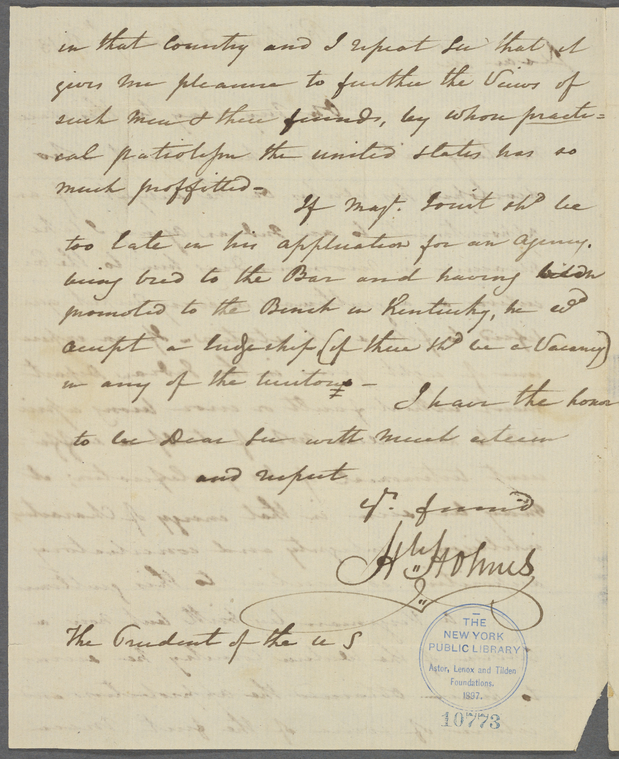 in that Country and I repeat Sir that it
gives me pleasure to further the Views of
such men & their friends, by whose practi=
cal patriotism the united States has so
much proffitted-
If Majr. shd be
too late in his application for an Agency.
being bred to the Bar and having
promoted to the Bench in Kentucky, he wd
accept a Judgeship (if there shd be a Vacancy)
in any of the territory -
I have the honor
to be Dear Sir with much esteem
and respect
Yr. friend
Holmes
The President of the U S
THE
NEW YORK
PUBLIC LIBRARY
Astor, Lenox and Tilden
Foundations.
1897.
10773